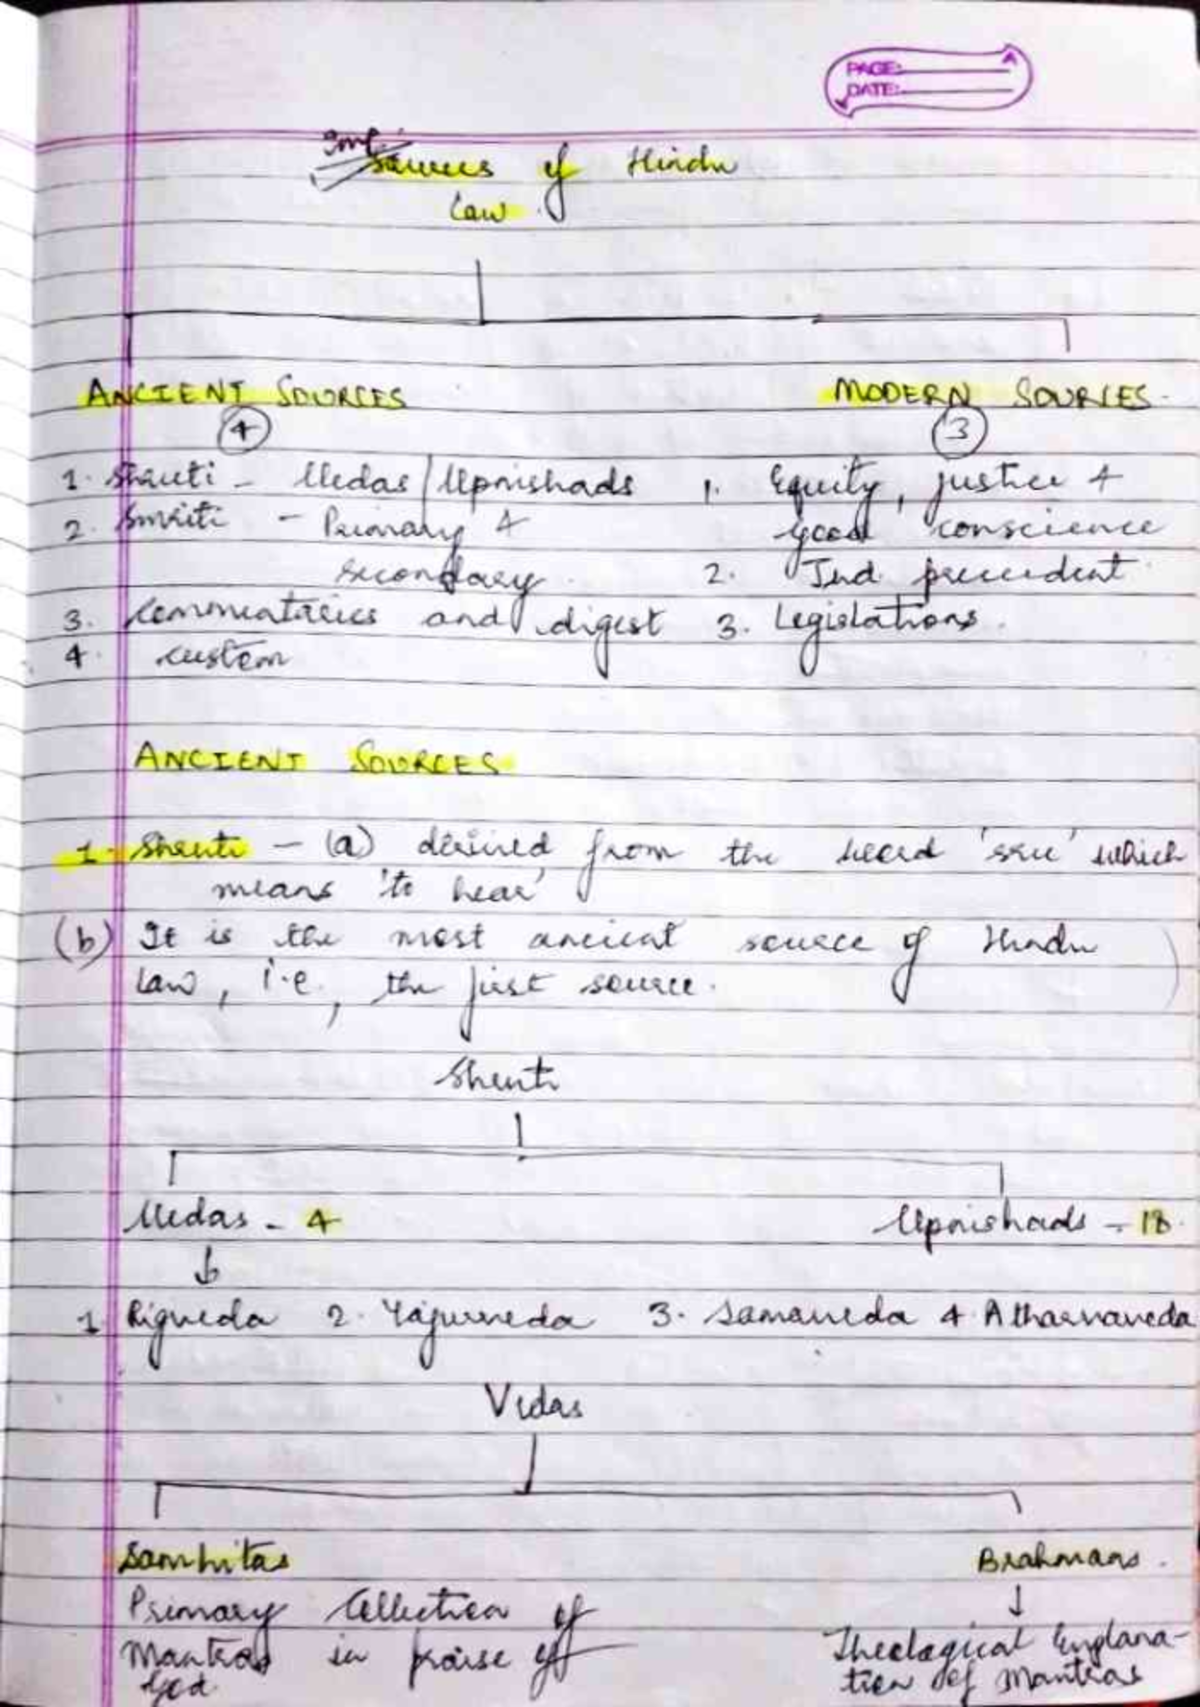 PAGE:
DATE:
Imp.
Sources of Hindu
Law.
ANCIENT SOURCES
4
MODERN SOURCES.
3
1. Shruti - Vedas/Upnishads
2. Smriti - Primary &
secondary.
3. Commentaries and digest
4. custom
1. Equity, justice &
good conscience
2. Jud. precedent.
3. Legislations.
ANCIENT SOURCES
1. Shruti - (a) derived from the word 'sru' which
means 'to hear'
(b) It is the most ancient source of Hindu
Law, i.e., the first source.
Shruti
Vedas - 4
Upnishads - 18.
1. Rigveda 2. Yajurveda 3. Samaveda 4. Atharvaveda
Vedas
Samhitas
Primary Collection of
Mantras in praise of
God.
Brahmans.
Theological Explana-
tion of Mantras